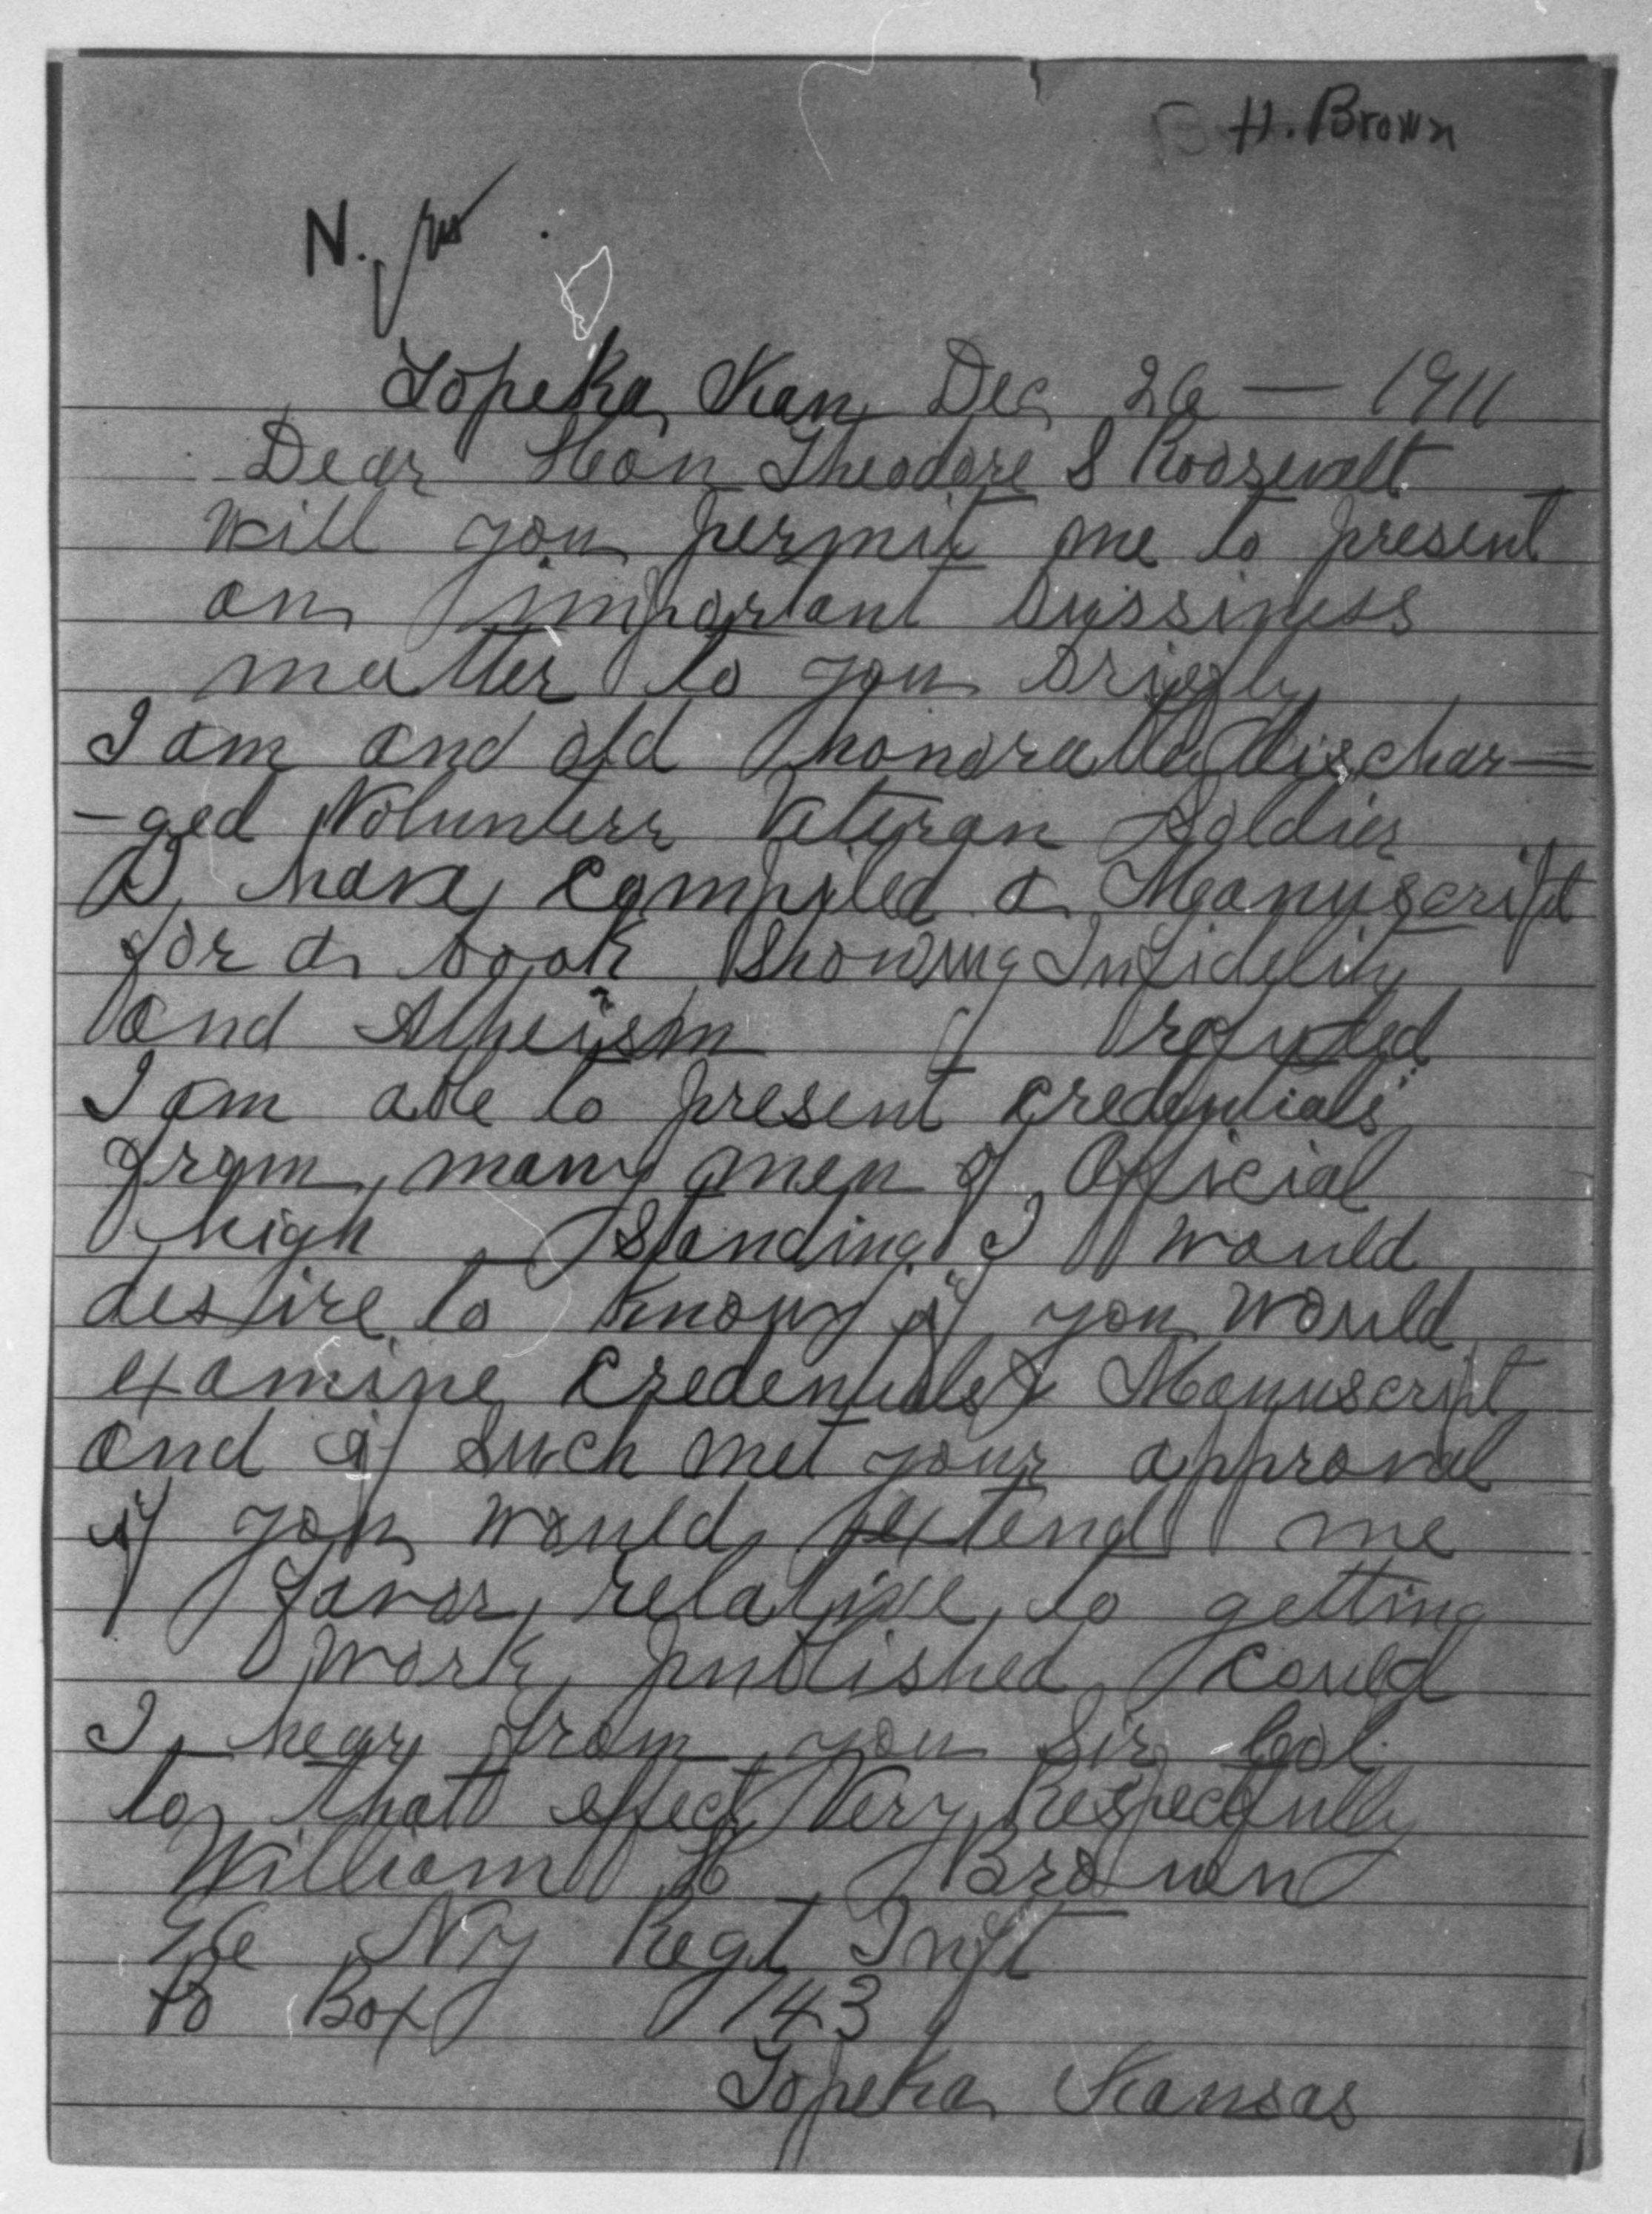 H. Brown
N.
Topeka Kan Dec 26 — 1911
Dear Hon Theodore S Roosevelt
Will you permit me to present
an important bussiness
matter to you briefly
I am and old honorably dischar=
-ged Volunteer Veteran Soldier
I have compiled a Manuscript
for a book Showing Infidelity
and Atheism refuted
I am able to present credentials
from many men of Official
high Standing. I would
desire to know if you would
examine Credentials & Manuscript
and if such met your approval
if you would extend me
favor relative to getting
work published Could
I hear from you Sir Col
to that effect Very Respectfully
William H Brown
Ny Regt Inft
Po Box 743
Topeka Kansas